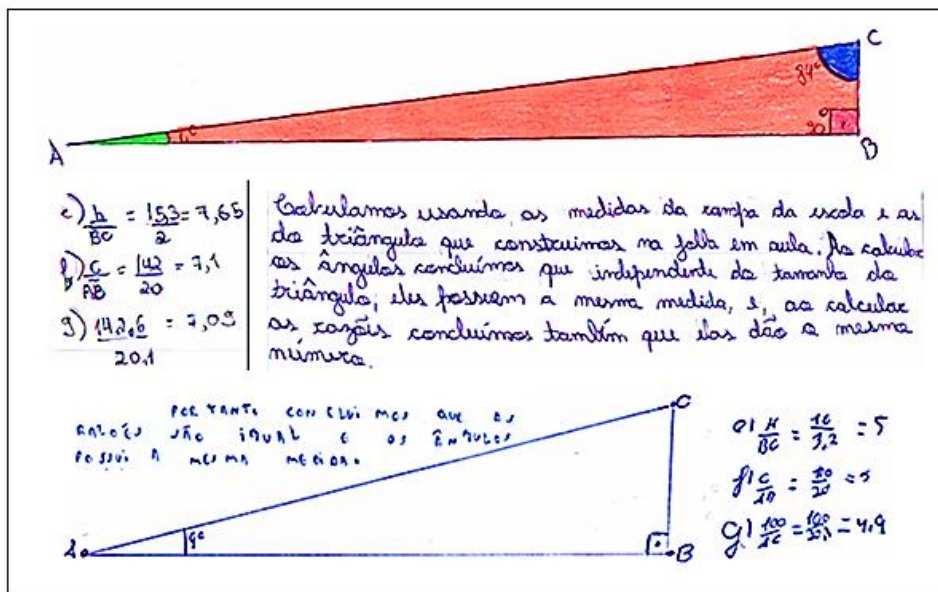 C
84°
90
B
A
e) h/BC = 15,3/2 = 7,65
f) c/AB = 142/20 = 7,1
g) 142,6/20,1 = 7,09
Calculamos usando as medidas da rampa da escola e as
do triângulo que construimos na folha em aula. Ao calcular
os ângulos concluímos que independente do tamanho do
triângulo, eles possuem a mesma medida, e, ao calcular
as razões concluímos também que elas dão o mesmo
número.
PORTANTO CONCLUIMOS QUE AS
RAZÕES SÃO IGUAL E OS ÂNGULOS
POSSUI A MESMA MEDIDA.
C
9°
B
e) H/BC = 16/3,2 = 5
= 5
= 4,9